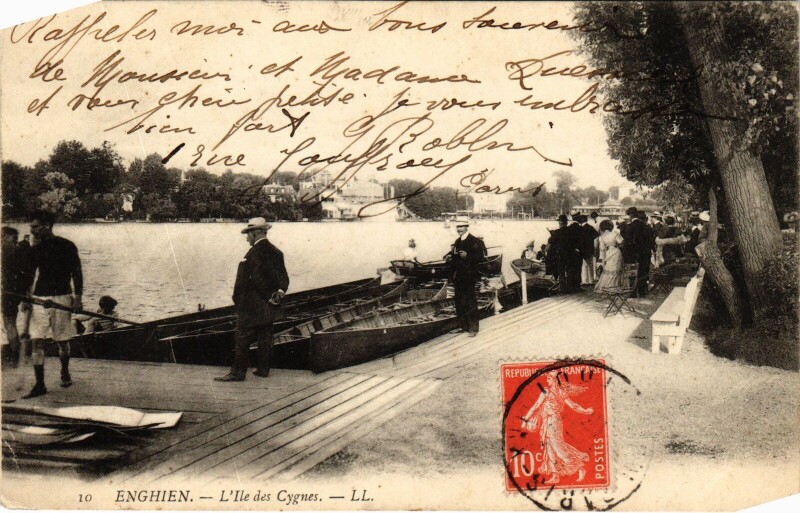 Rappeler moi aux bons souvenirs
de Monsieur et Madame
et vous chère petite je vous embrasse
bien fort G Roblin
1 Rue Jouffroy Paris
REPUBLIQUE FRANÇAISE
10c POSTES
PARIS
10 ENGHIEN. — L'Ile des Cygnes. — LL.